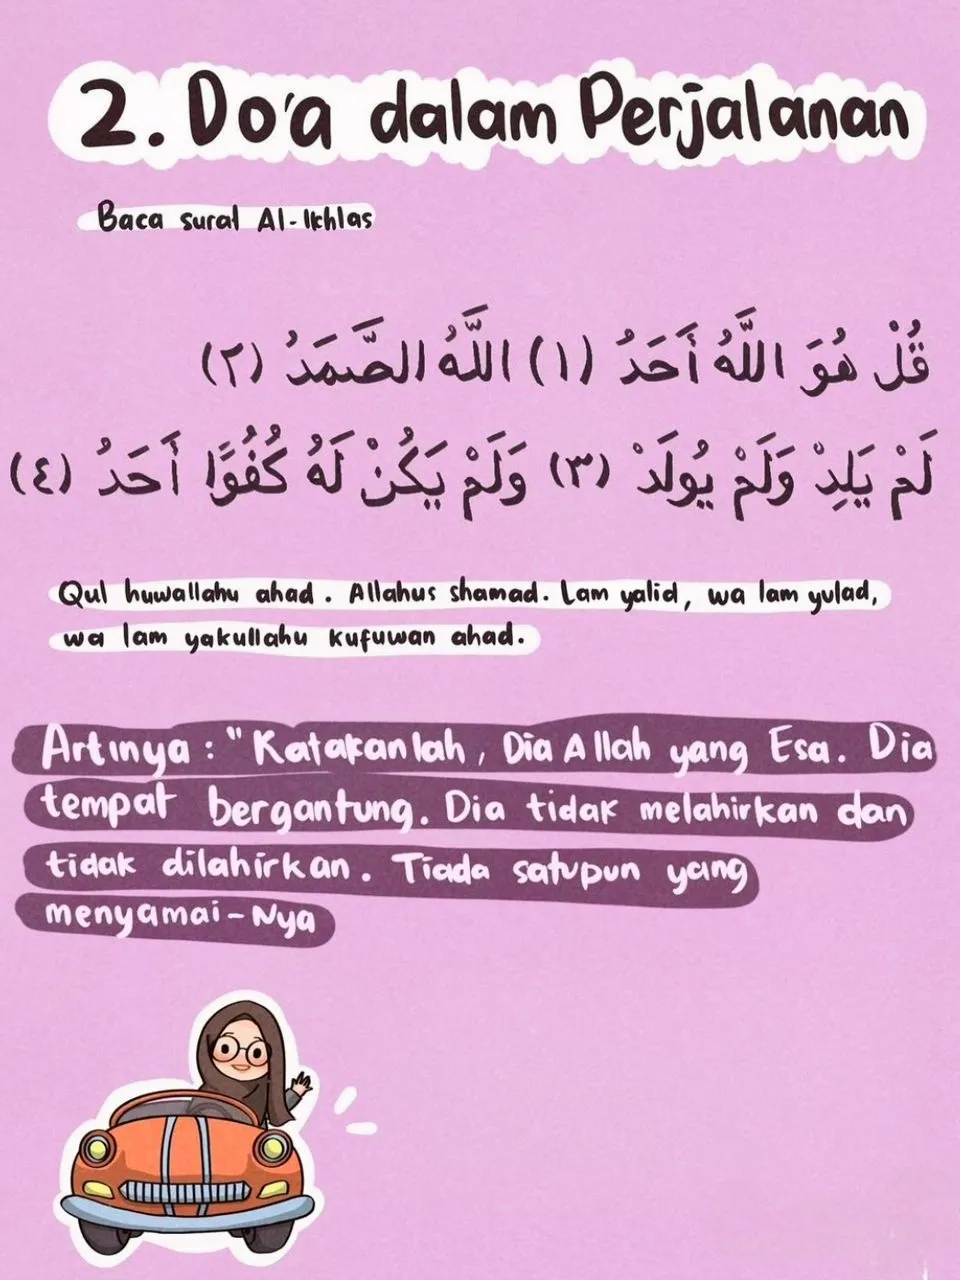 2. Do'a dalam Perjalanan
Baca surat Al-Ikhlas
قُلْ هُوَ اللَّهُ أَحَدُ (١) اللَّهُ الصَّمَدُ (٢)
لَمْ يَلِدْ وَلَمْ يُولَدْ (٣) وَلَمْ يَكُنْ لَهُ كُفُوًا أَحَدُ (٤)
Qul huwallahu ahad. Allahus shamad. Lam yalid, wa lam yulad,
wa lam yakullahu kufuwan ahad.
Artinya : "Katakanlah, Dia Allah yang Esa. Dia
tempat bergantung. Dia tidak melahirkan dan
tidak dilahirkan. Tiada satupun yang
menyamai-Nya